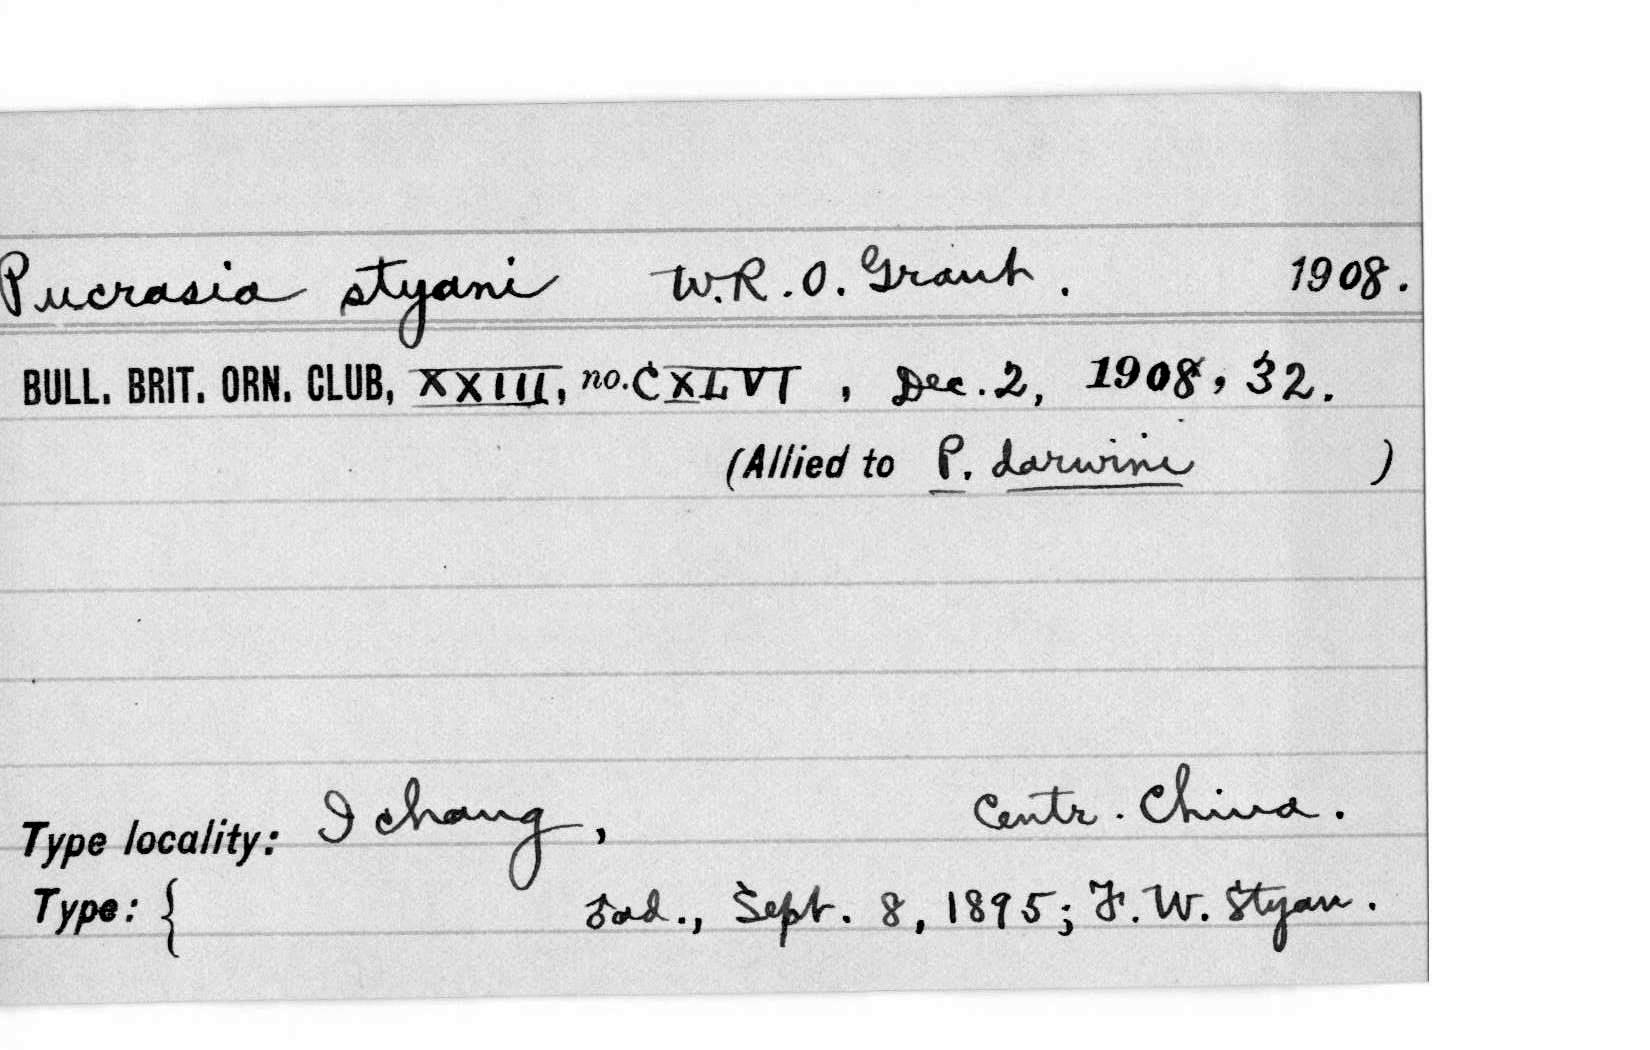 Pucrasia styani W.R.O. Grant. 1908.
BULL. BRIT. ORN. CLUB, XXIII, no. CXLVI, Dec. 2, 1908, 32.
(Allied to P. darwini )
Type locality: Ichang, Centr. China.
Type: { ad., Sept. 8, 1895; F. W. Styan.